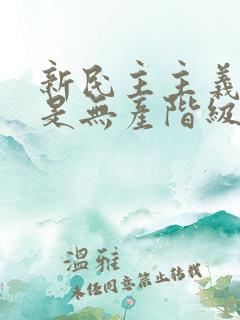 新民主主義
是無産階級
溫雅
未任同意禁止转载